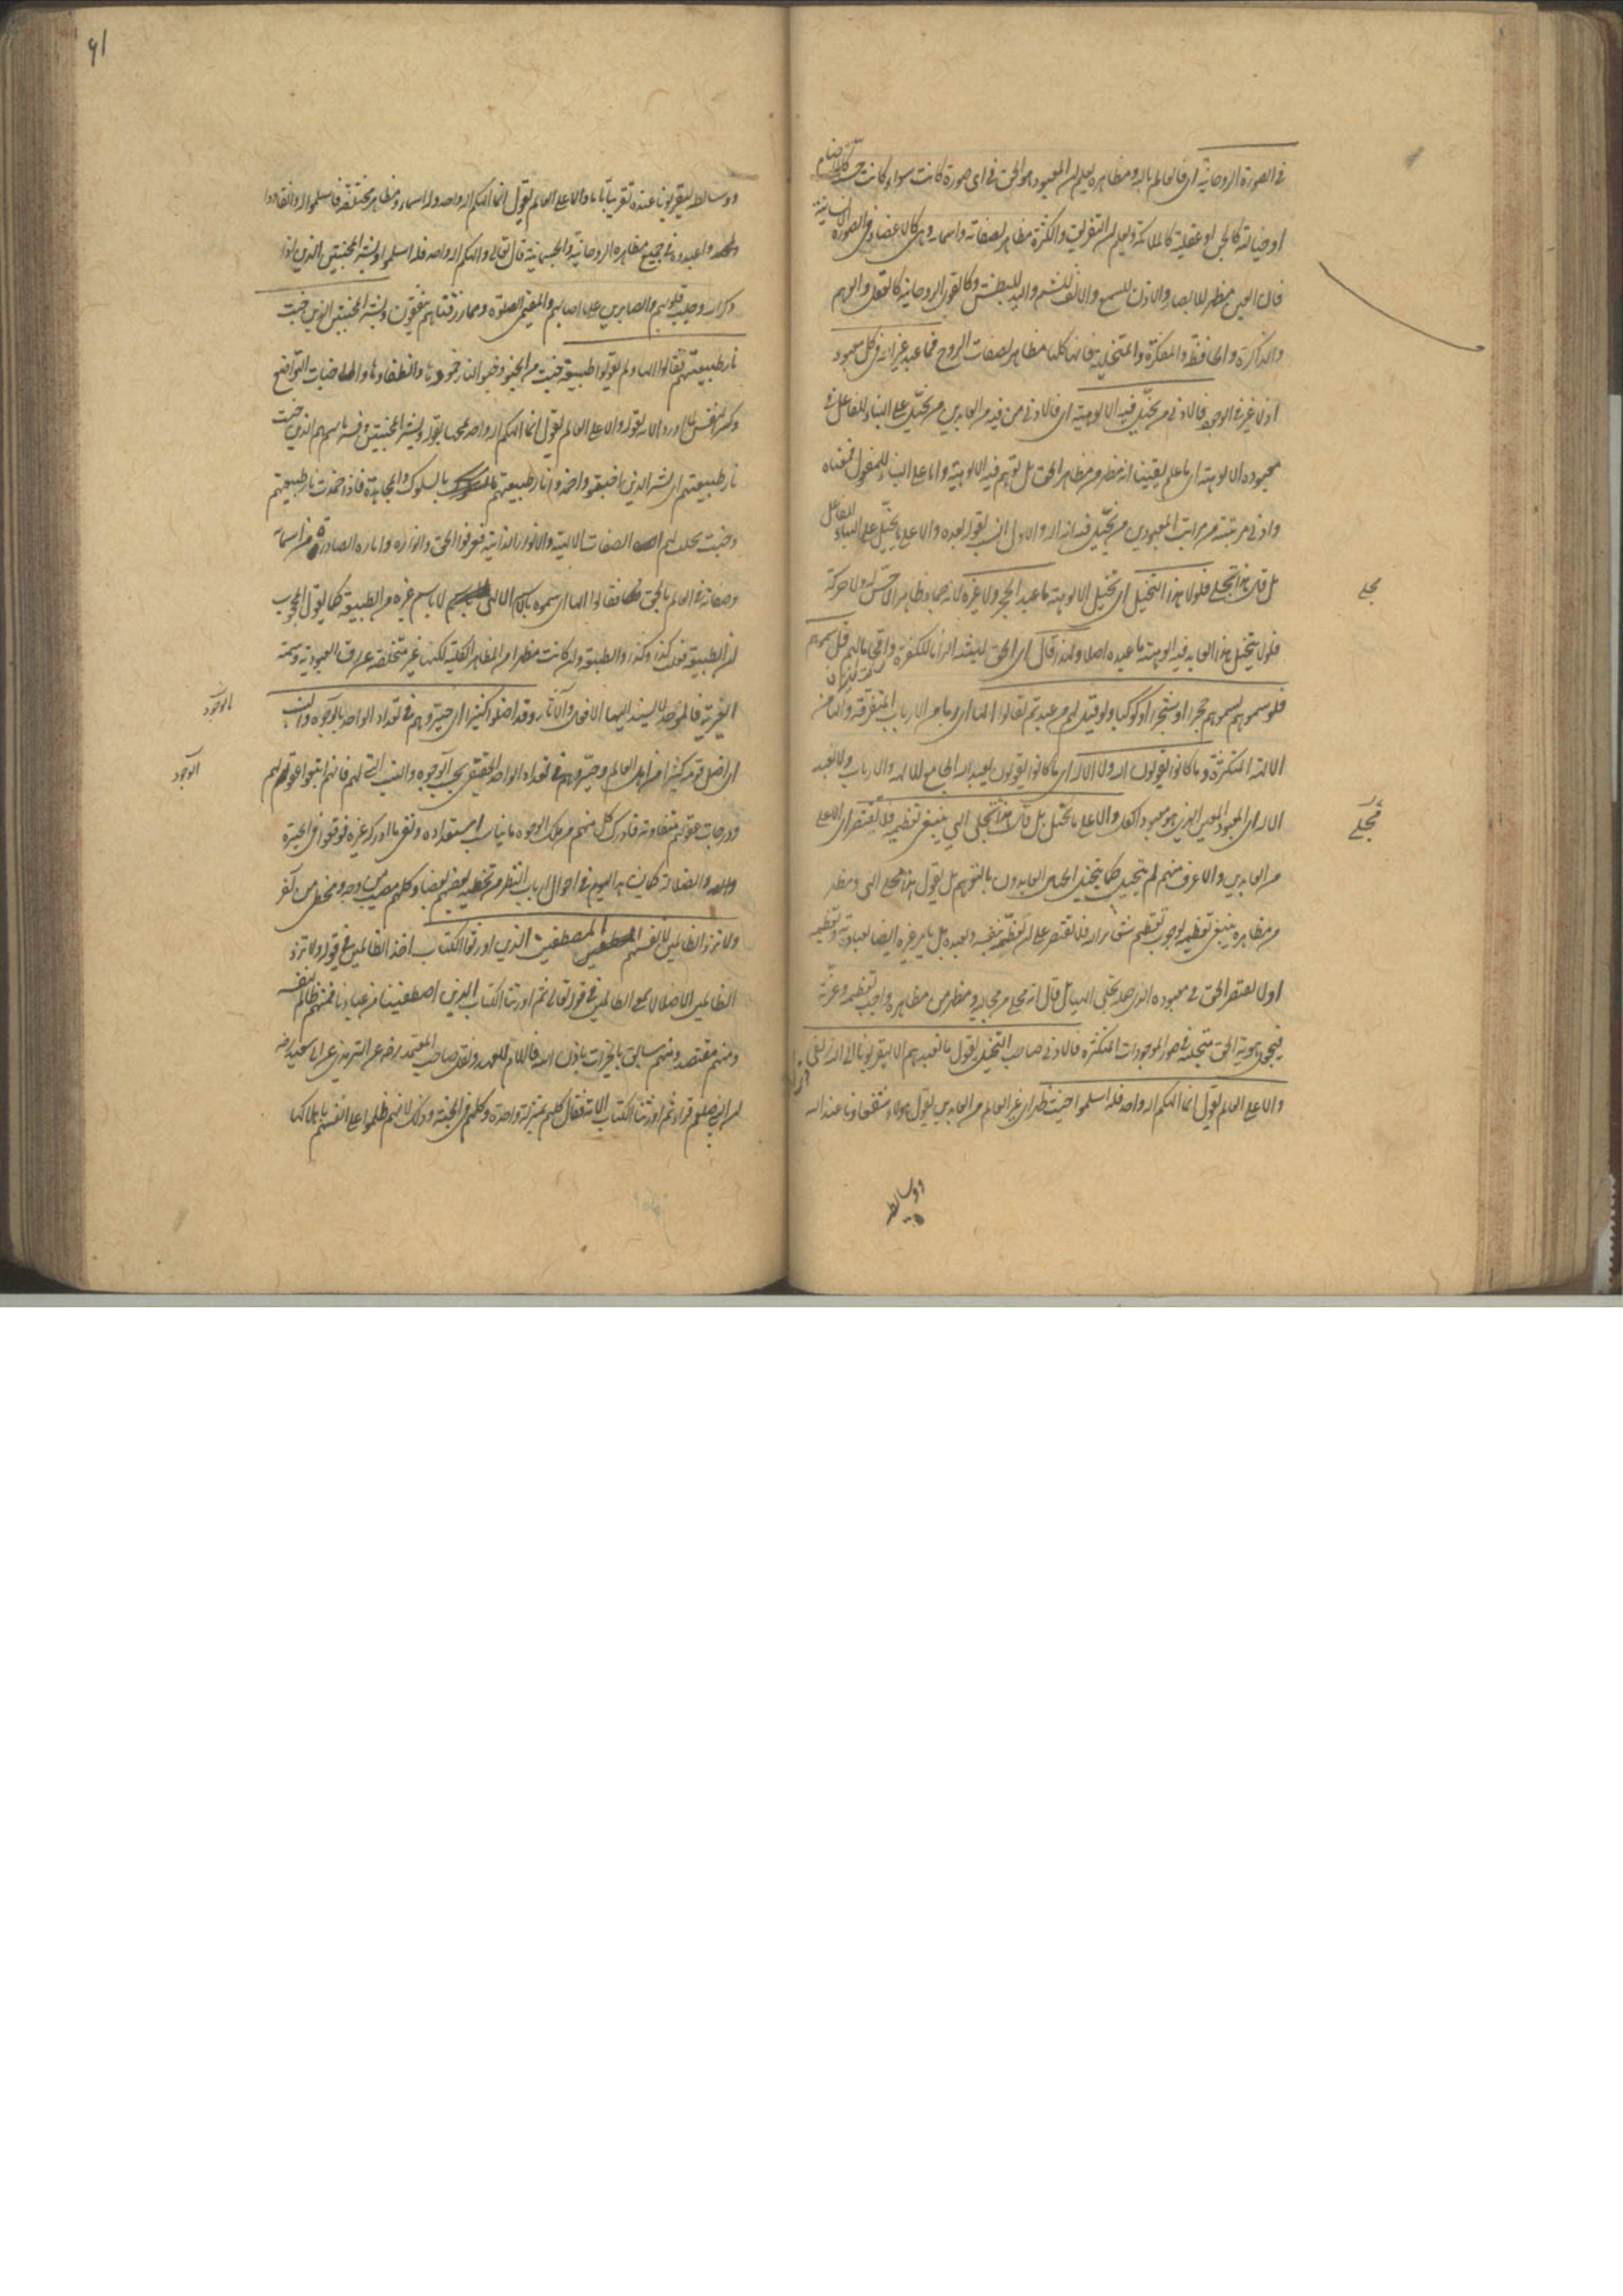 في الصورة الروحانية اى فالعالم بالله ومظاهره يعلم ان المعبود هو الحق في اى صورة كانت سواء كانت حسية كالاصنام
او خيالية كالجن او عقلية كالملائكة ويعلم ان التفريق والكثرة مظاهر لصفاته واسمائه وهى كالاعضاء في الصورة الانسانية
فان العين مظهر للابصار والاذن للسمع والانف للشم واليد للبطش وكالقوى الروحانية كالعقل والوهم
والذاكرة والحافظة والمفكرة والمتخيلة فانها كلها مظاهر لصفات الروح فما عبد غير الله في كل معبود
اذ لا غير في الوجود فالادنى من تخيل فيه الالوهية اى فالادنى من فيه من العابدين من تخيل على البناء للفاعل في
معبوده الالوهية اى ما علم يقينا انه مظهر من مظاهر الحق بل توهم فيه الالوهية واما على البناء للمفعول فمعناه
وادنى مرتبة من مراتب المعبودين من تخيل فيه انه اله والاول انسب لقوله بعده والاعلى ما تخيل على البناء للفاعل
بل قال هذا مجلى فلولا هذا التخيل اى تخيل الالوهية ما عبد الحجر ولا غيره لانه جماد ظاهر لا حس له ولا حركة
فلو لم يتخيل هذا العابد فيه الالوهية ما عبده اصلا ولهذا قال اى الحق ليشد الزاما للكفرة وافحاما لهم قل سموهم
فلو سموهم لسموهم حجرا او شجرا او كوكبا ولو قيل لهم من عبدتم لقالوا الها اى ربا من الارباب المتفرقة والها من
الالهة المتكثرة وما كانوا يقولون الله ولا الاله اى ما كانوا يقولون نعبد الله الجامع للالهة والارباب ولا نعبد
الاله اى المعبود المعين الذى هو معبود الكل والاعلى ما تخيل بل قال هذا مجلى الهى ينبغى تعظيمه فلا يقتصر اى الاعلى
من العابدين والاعرف منهم لم يتخيل كما يتخيل الجاهل العابدون بالتوهم بل يقول هذا مجلى الهى ومظهر
من مظاهره ينبغى تعظيمه لوجوب تعظيم شعائر الله فلا يقتصر على ان تعظمه بنفسه وتعبده بل يامر غيره ايضا لعبادته وتعظيمه
او لا يقتصر الحق في معبوده الذى حصل تجلى الهيا بل قال انه مجلى من مجاليه ومظهر من مظاهره واجب تعظيمه وعزته
فيجد هوية الحق متجلية في صور الموجودات المتكثرة فالادنى صاحب التخيل يقول ما نعبدهم الا ليقربونا الى الله زلفى
والاعلى العالم يقول انما الهكم اله واحد فله اسلموا حيث ظهر اى غير العالم من العابدين يقول هؤلاء شفعاؤنا عند الله
مجلى
مجلى
ووسائط
٩١
ووسائط ليقربونا عنده تقريبا تاما والاعلى العالم يقول انما الهكم اله واحد وله اسماء ومظاهر مختلفة فاسلموا له وانقادوا
واعبدوه في جميع مظاهره الروحانية والجسمانية قال تعالى والهكم اله واحد فله اسلموا وبشر المخبتين الذين اذا
ذكر الله وجلت قلوبهم والصابرين على ما اصابهم والمقيمى الصلوة ومما رزقناهم ينفقون وبشر المخبتين الذين خبت
نار طبيعتهم فقالوا الها ولم يقولوا طبيعة خبت من الخبو وخبو النار خمودها وانطفاؤها والاخبات التواضع
وكسر النفس لما اورد الآية لقوله والاعلى العالم يقول انما الهكم اله واحد تممها بقوله وبشر المخبتين وفسره باسم الذين خبت
نار طبيعتهم اى بشر الذين اخبتوا واخمدوا نار طبيعتهم بالسلوك والمجاهدة فاذا خمدت نار طبيعتهم
وخبت تجلت لهم الصفات الالهية والانوار الذاتية فعرفوا الحق وانواره واثاره الصادرة من اسمائه
وصفاته في العالم بالحق فقالوا الها اى سموه بالاسم الالهى لا باسم غيره من الطبيعة كما يقول المحجوب
ان الطبيعة فعلت كذا وكذا والطبيعة وان كانت مظهرا من المظاهر الكلية لكنها غير متخلصة عن رق العبودية وسمة
الغيرية فالموحد لا يسند اليها الافعال والآثار وقد اضلوا كثيرا اى حيروهم في تعداد الواحد بالوجوه والنسب
اى اضل قومه كثيرا من اهل العالم وحيروهم في تعداد الواحد الحقيقى بحسب الوجوه والنسب التى لهم فانهم اتبعوا عقولهم
ودرجات عقولهم متفاوتة فادرك كل منهم من تلك الوجوه ما يناسب استعداده ونفى ما ادركه غيره فوقعوا في الحيرة
والضلالة كما نشاهد اليوم في احوال ارباب النظر من تخطئة بعضهم بعضا وكلهم مصيب من وجه ومخطئ من آخر
ولا تزد الظالمين لانفسهم المصطفين الذين اورثوا الكتاب اخذ الظالمين في قوله ولا تزد
الظالمين الا ضلالا بمعنى الظالمين في قوله تعالى ثم اورثنا الكتاب الذين اصطفينا من عبادنا فمنهم ظالم لنفسه
ومنهم مقتصد ومنهم سابق بالخيرات باذن الله فاللام للعهد ونقل صاحب المعتمد رحمه عن الترمذى عن ابى سعيد رضه
ان النبى صلعم قرأ ثم اورثنا الكتاب الآية فقال كلهم بمنزلة واحدة وكلهم في الجنة وذلك لانهم ظلموا على انفسهم باهلاكها
بالوجوه
الوجوه